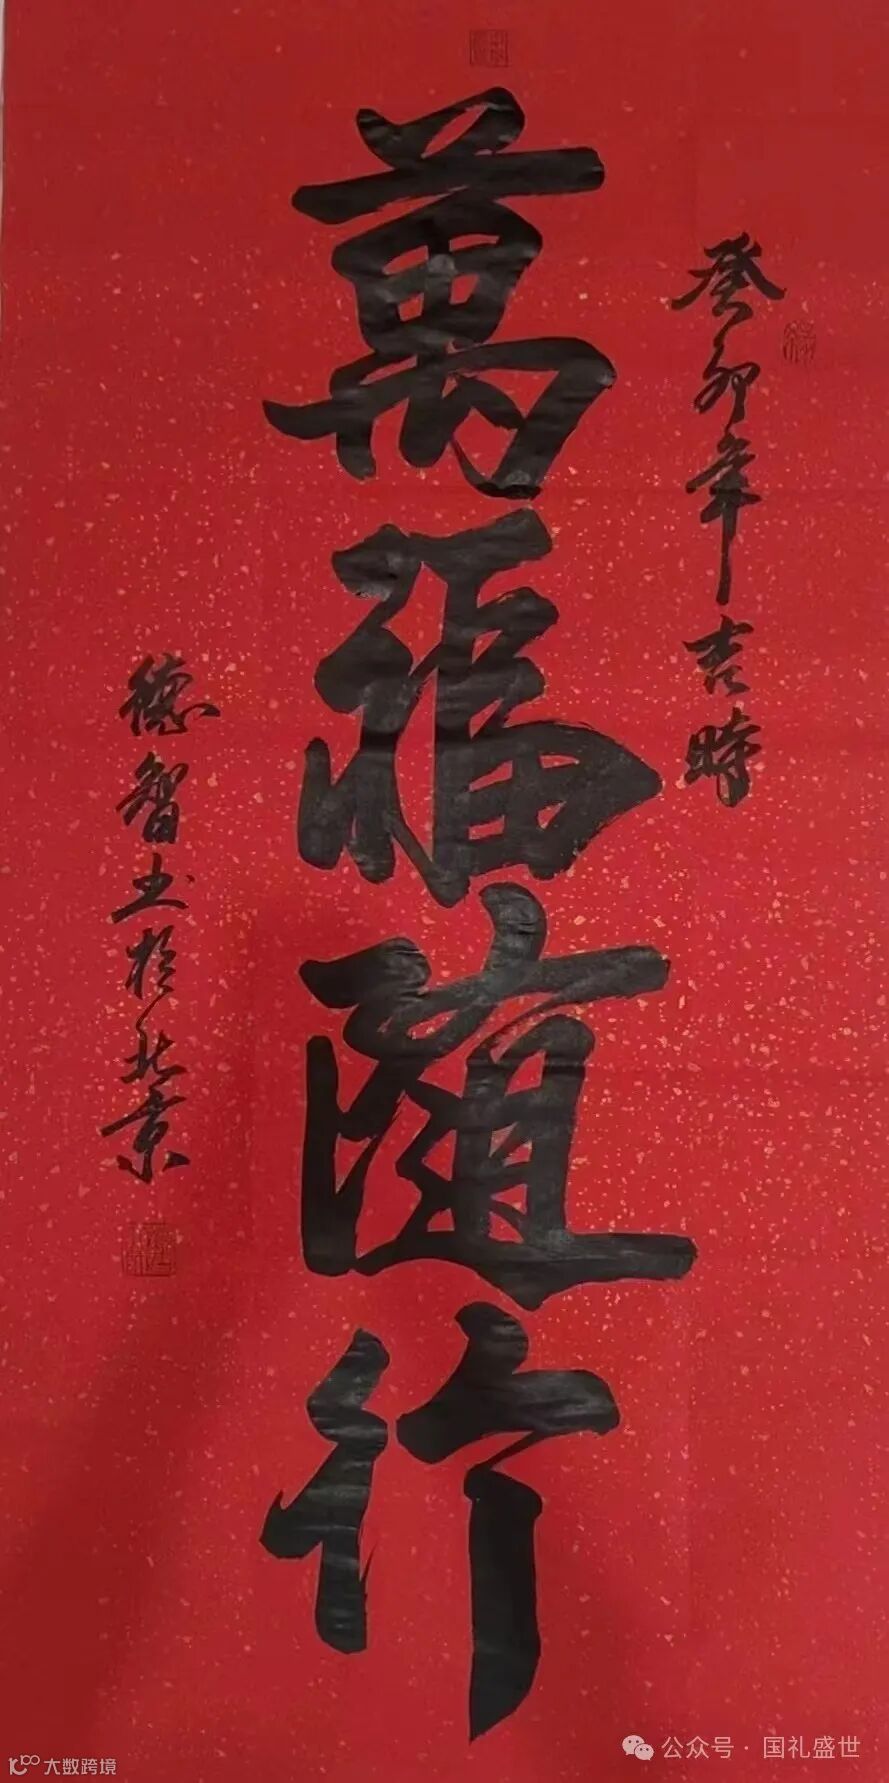 癸卯年吉時
萬福隨行
德智书於北京
公众号·国礼盛世
大数跨境